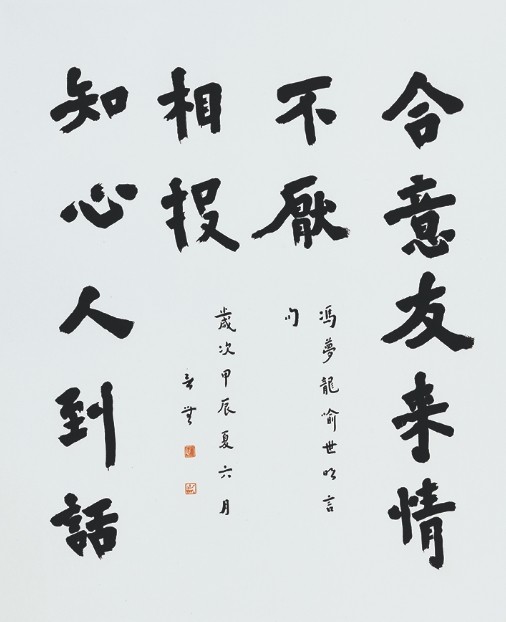 合意友来情
不厭
知心人到話
相投
馮夢龍喻世明言
句
歲次甲辰夏六月